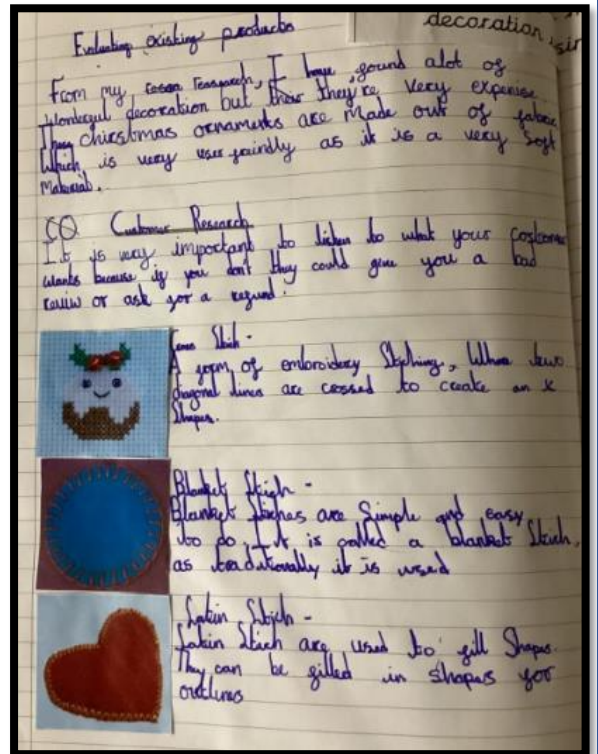 decoration
Evaluating existing products
From my research, I have found alot of
wonderful decoration but they're very expensive
These chirstmas ornaments are made out of fabric
Which is very user frindly as it is a very soft
Material.
Customer Research
It is very important to listen to what your costomer
wants because if you don't they could give you a bad
reuiw or ask for a refund.
Cross Stich -
A form of embroidery Stiching, Where two
diagonal lines are crossed to create an x
Shapes.
Blanket Stich -
Blanket Stiches are Simple and easy
to do. It is called a blanket Stich,
as traditionally it is used
Satin Stich -
Satin Stich are used to fill Shapes.
They can be filled in shapes for
outlines